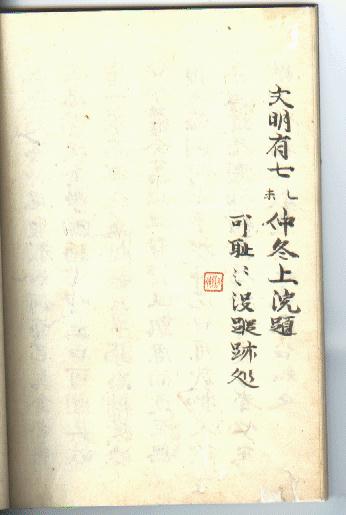 文明有七乙未仲冬上浣題
可耻々没蹤跡処